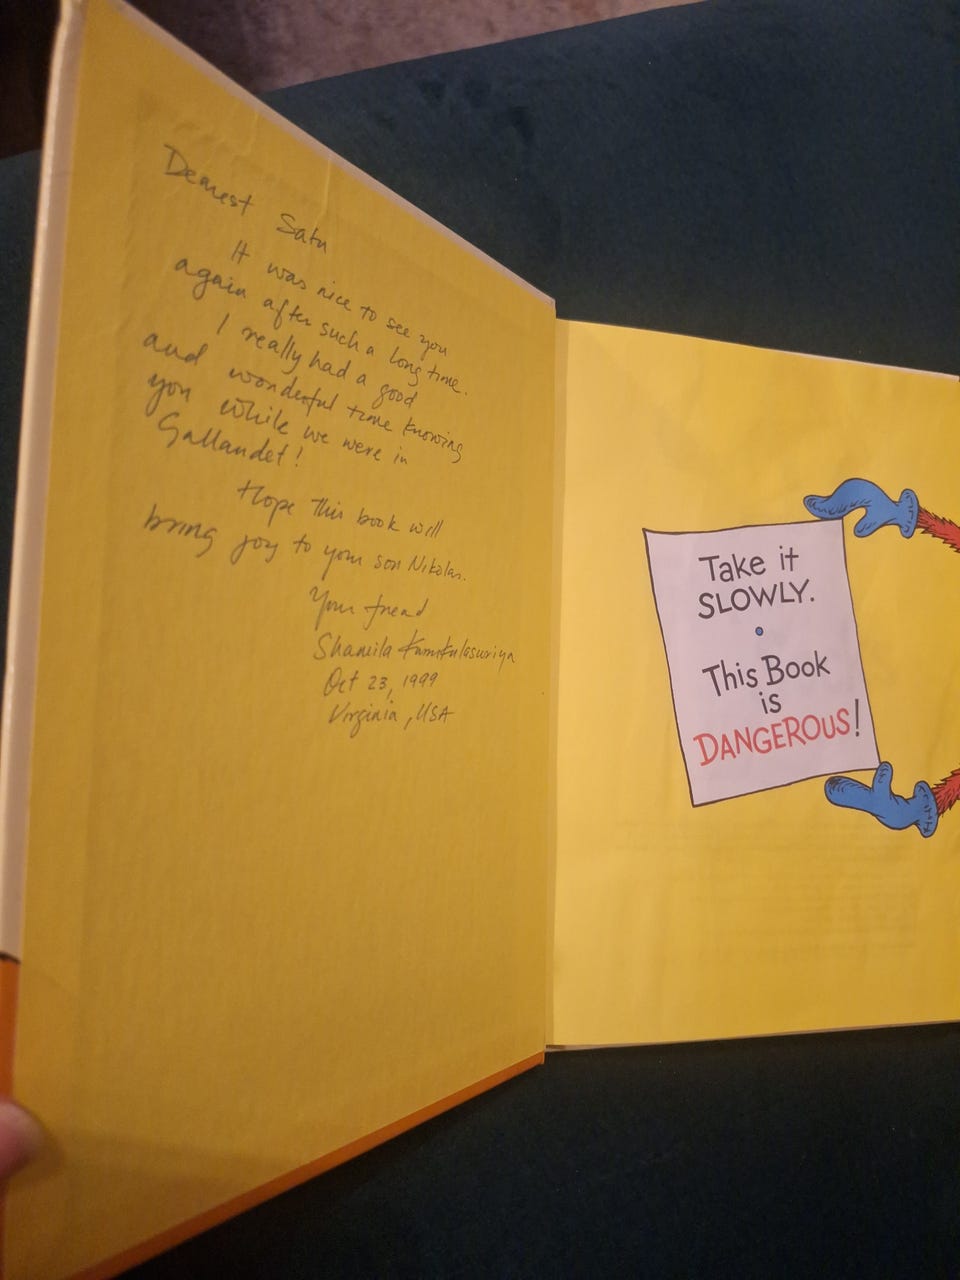 Dearest Satu
It was nice to see you
again after such a long time.
I really had a good
and wonderful time knowing
you while we were in
Gallaudet!
Hope this book will
bring joy to your son Nikolas.
Your friend
Shamila Kumkulasuriya
Oct 23, 1999
Virginia, USA
Take it
SLOWLY.
This Book
is
DANGEROUS!